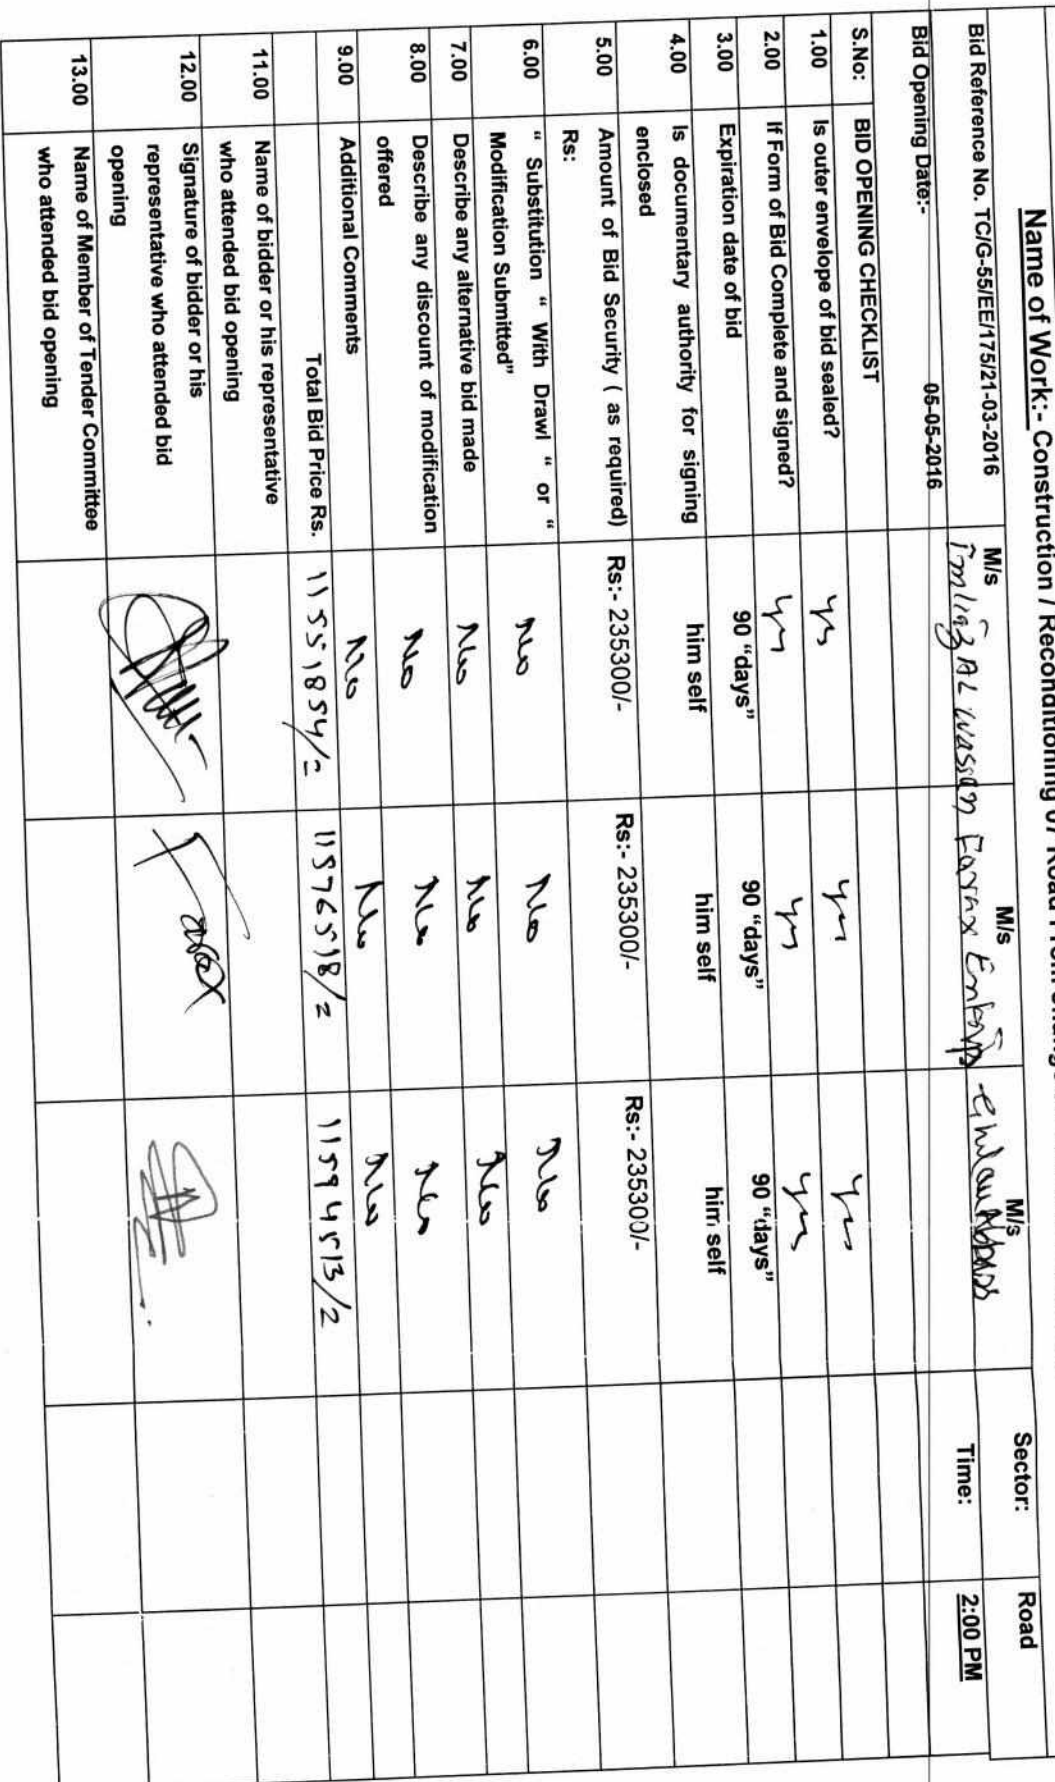 Name of Work:- Construction / Reconditioning of Road From
Sector: Road
Bid Reference No. TC/G-55/EE/175/21-03-2016 M/s M/s M/s Time: 2:00 PM
Imtiaz AL Wassan Faraz Ghulam Abbas
Bid Opening Date:- 05-05-2016
S.No: BID OPENING CHECKLIST
1.00 Is outer envelope of bid sealed? yes yes yes
2.00 If Form of Bid Complete and signed? yes yes yes
3.00 Expiration date of bid 90 “days” 90 “days” 90 “days”
4.00 Is documentary authority for signing him self him self him self
enclosed
5.00 Amount of Bid Security ( as required) Rs:- 235300/- Rs:- 235300/- Rs:- 235300/-
Rs:
6.00 “ Substitution “ With Drawl “ or “ No No No
Modification Submitted”
7.00 Describe any alternative bid made No No No
8.00 Describe any discount of modification No No No
offered
9.00 Additional Comments No No No
Total Bid Price Rs. 11551854/= 11576518/= 11594513/=
11.00 Name of bidder or his representative
who attended bid opening
12.00 Signature of bidder or his
representative who attended bid
opening
13.00 Name of Member of Tender Committee
who attended bid opening